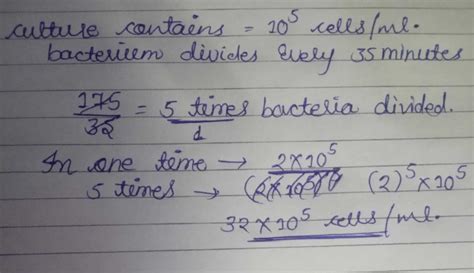 culture contains = 10⁵ cells/ml.
bacterium divides every 35 minutes
175/35 = 5 times bacteria divided.
In one time → 2×10⁵
5 times → (2)⁵×10⁵
32×10⁵ cells/ml.